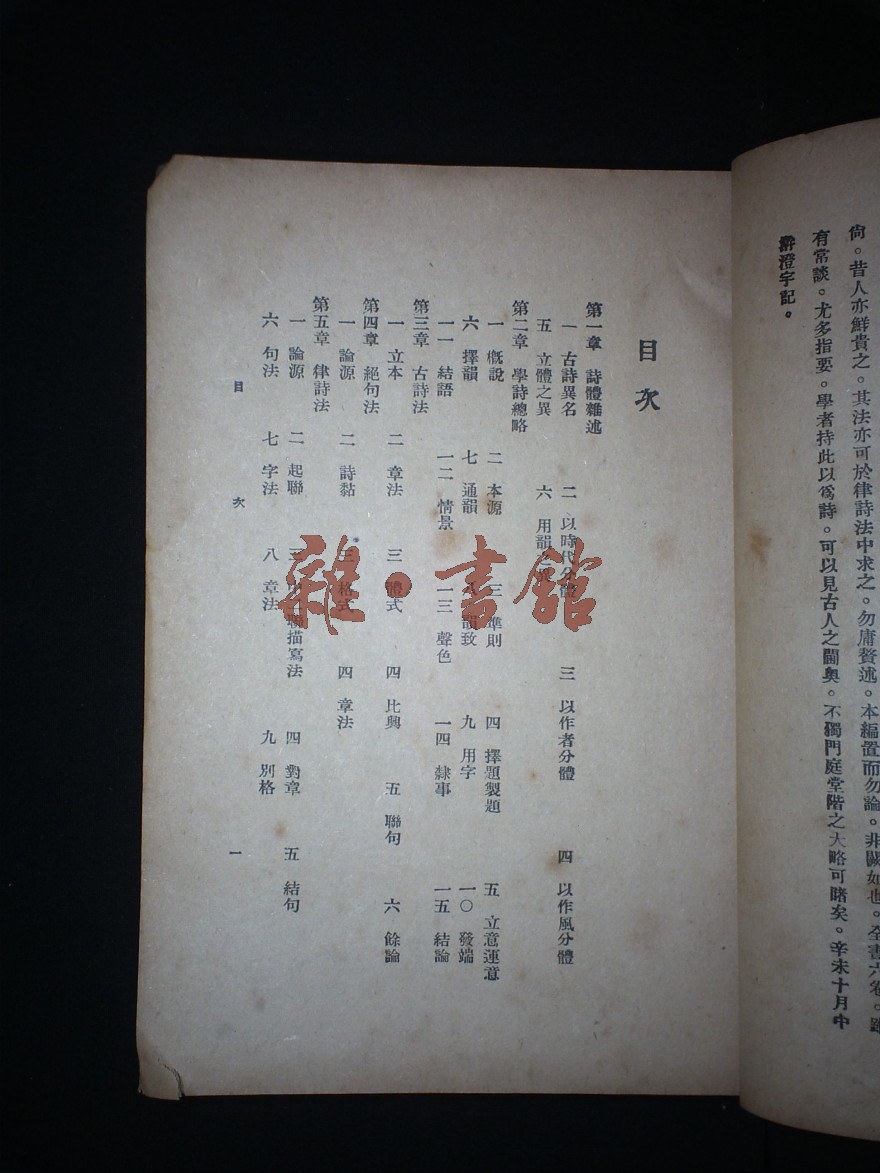 尙。昔人亦鮮貴之。其法亦可於律詩法中求之。勿庸贅述。本編置而勿論。非闕如也。全書六卷。雖
有常談。尤多指要。學者持此以爲詩。可以見古人之閫奧。不獨門庭堂階之大略可睹矣。辛未十月中
澣澄宇記。
目次
第一章 詩體雜述
一 古詩異名 二 以時代分體 三 以作者分體 四 以作風分體
五 立體之異 六 用韻之異
第二章 學詩總略
一 概說 二 本源 三 準則 四 擇題製題 五 立意運意
六 擇韻 七 通韻 八 韻致 九 用字 一〇 發端
一一 結語 一二 情景 一三 聲色 一四 隸事 一五 結論
第三章 古詩法
一 立本 二 章法 三 體式 四 比興 五 聯句 六 餘論
第四章 絕句法
一 論源 二 詩黏 三 格式 四 章法
第五章 律詩法
一 論源 二 起聯 三 中聯描寫法 四 對章 五 結句
六 句法 七 字法 八 章法 九 別格
目次 一
雜·書館